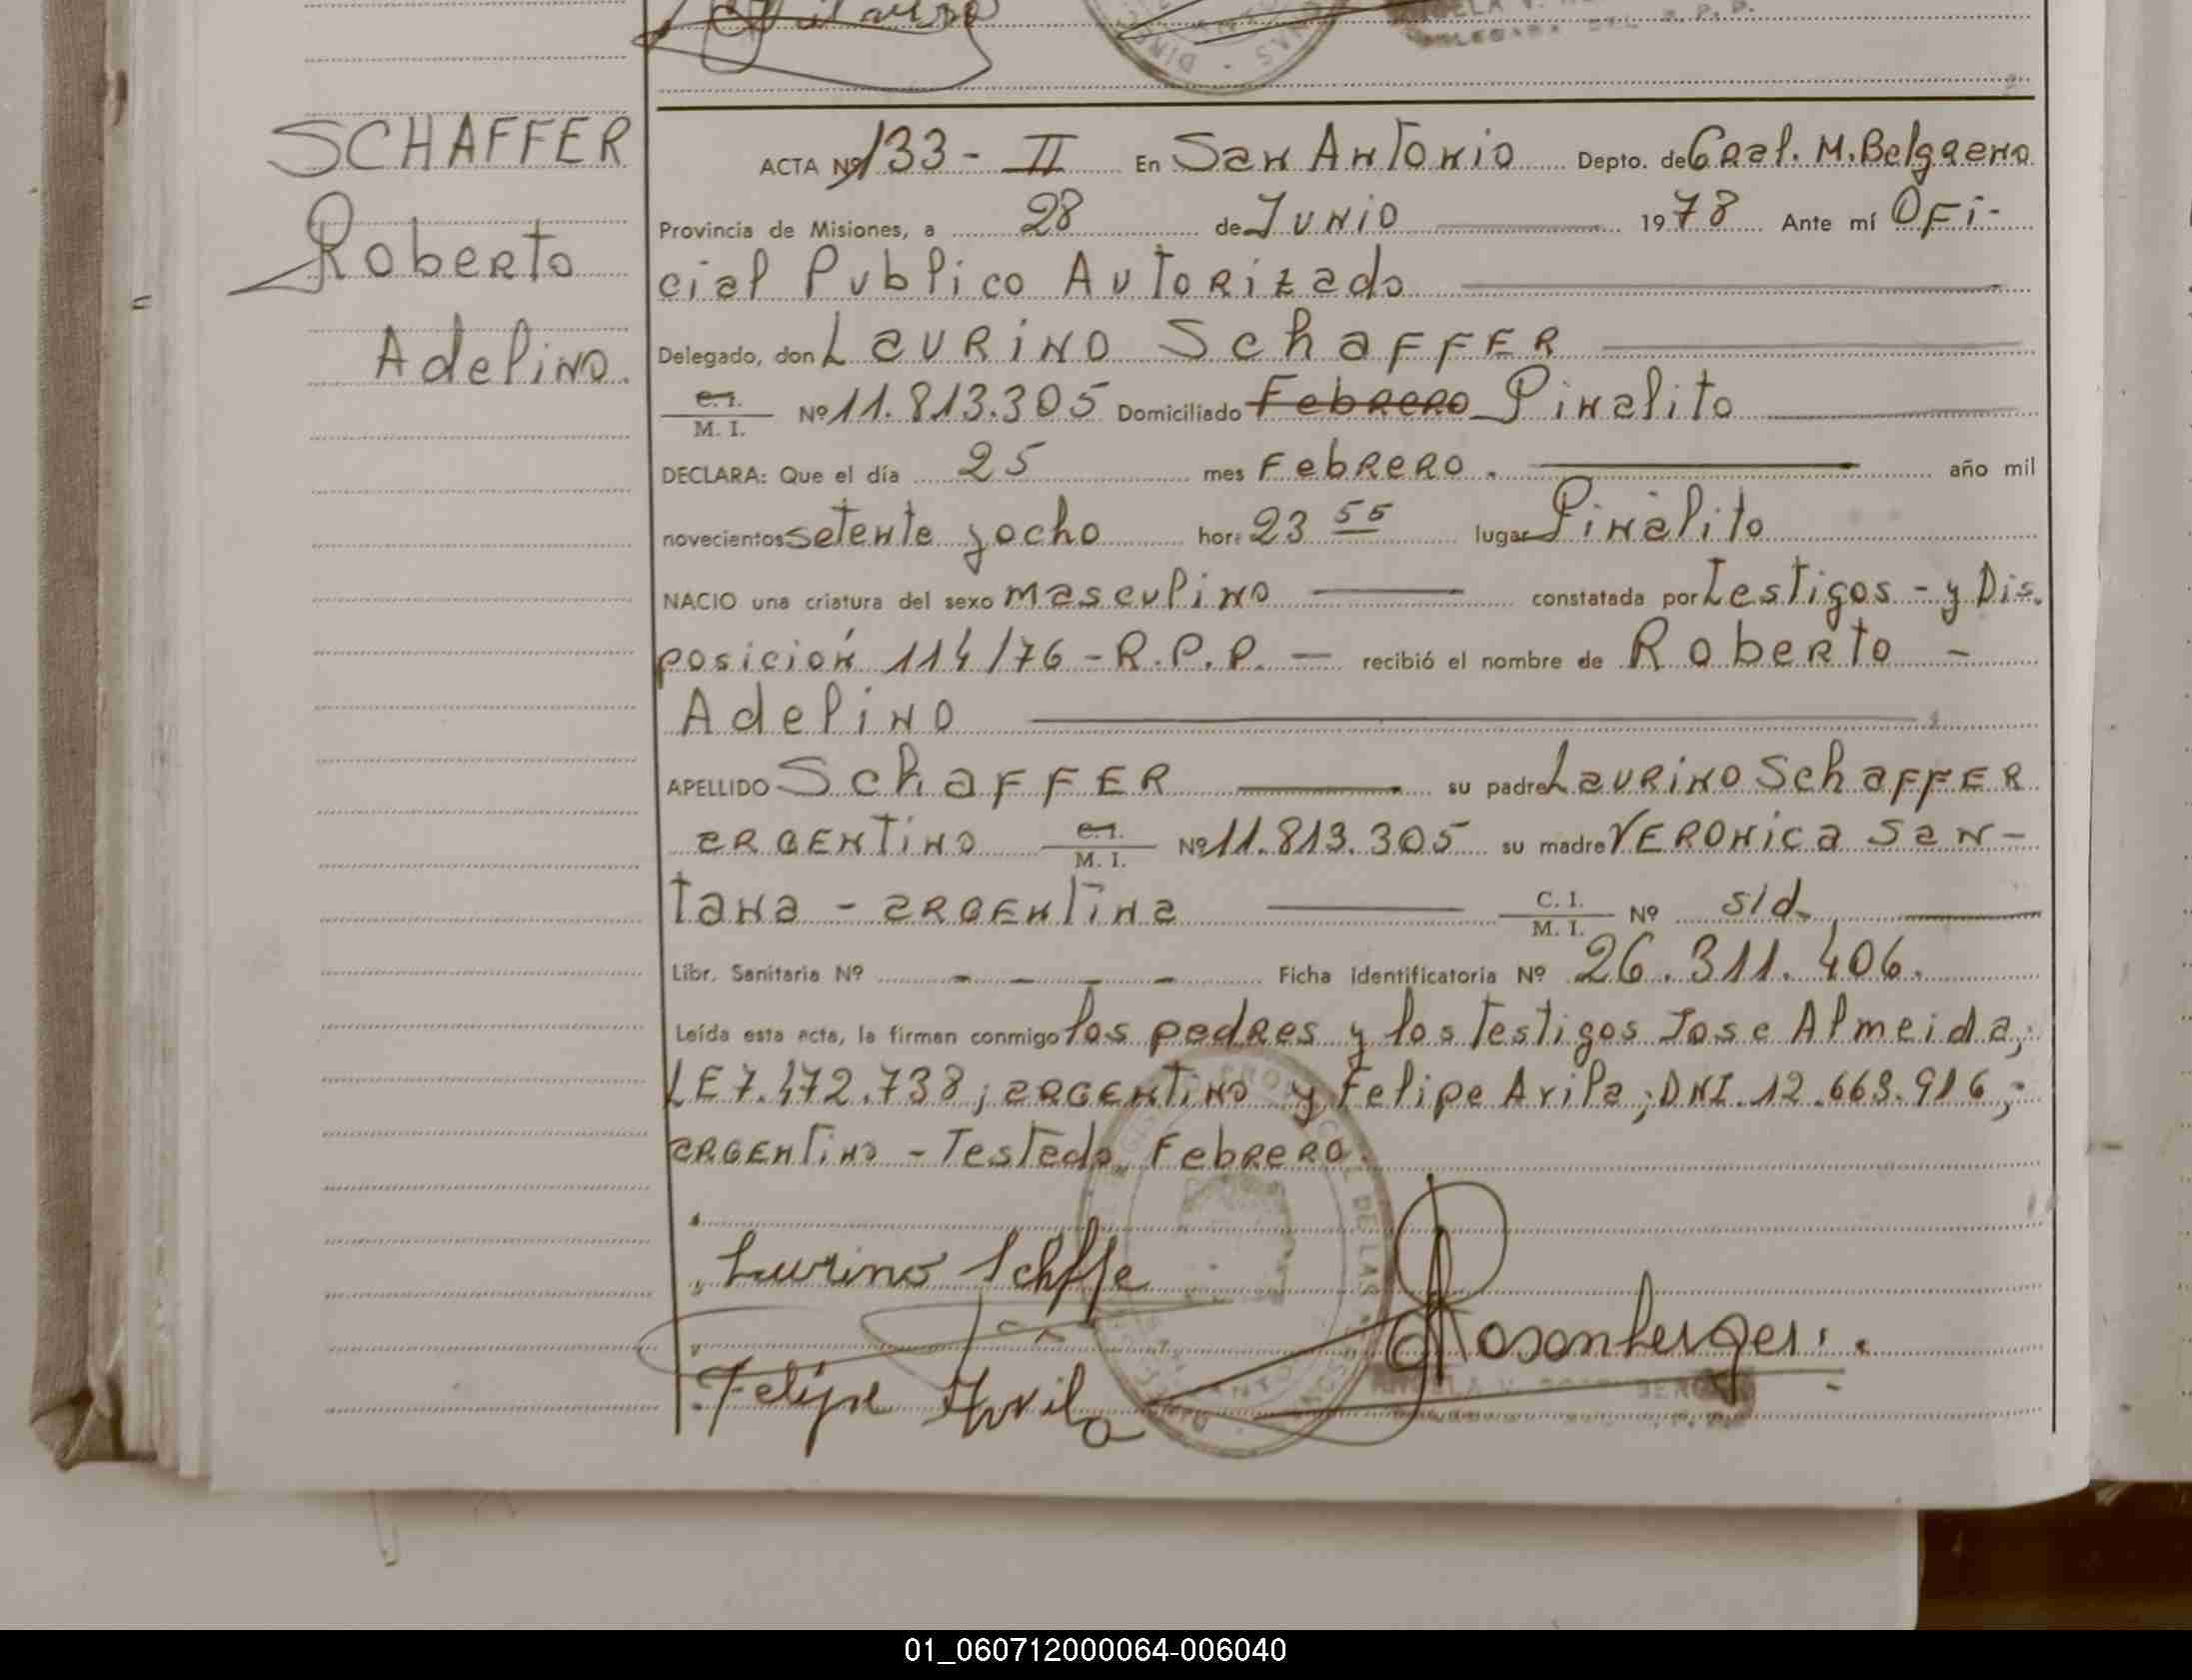 SCHAFFER
Roberto
Adelino.
ACTA Nº 133 - II En San Antonio Depto. de Gral. M. Belgrano
Provincia de Misiones, a 28 de Junio 1978 Ante mí Ofi-
cial Publico Autorizado
Delegado, don Laurino Schaffer
C.I. / M. I. Nº 11.813.305 Domiciliado Febrero Pinalito
DECLARA: Que el día 25 mes Febrero. año mil
novecientos setenta y ocho hora 23 55 lugar Pinalito
NACIO una criatura del sexo masculino constatada por Testigos - y Dis.
posición 114/76 - R.P.P. - recibió el nombre de Roberto -
Adelino
APELLIDO Schaffer su padre Laurino Schaffer
argentino C.I. / M. I. Nº 11.813.305 su madre Veronica San-
tana - argentina C. I. / M. I. Nº s/d.
Libr. Sanitaria Nº - - - - Ficha identificatoria Nº 26.311.406.
Leída esta acta, la firman conmigo los padres y los Testigos Jose Almeida;
LE 7.472.738; argentino y Felipe Avila; DNI. 12.663.916;
argentino - Testado Febrero.
Laurino
Rosenberger
Felipe Avila
01_060712000064-006040